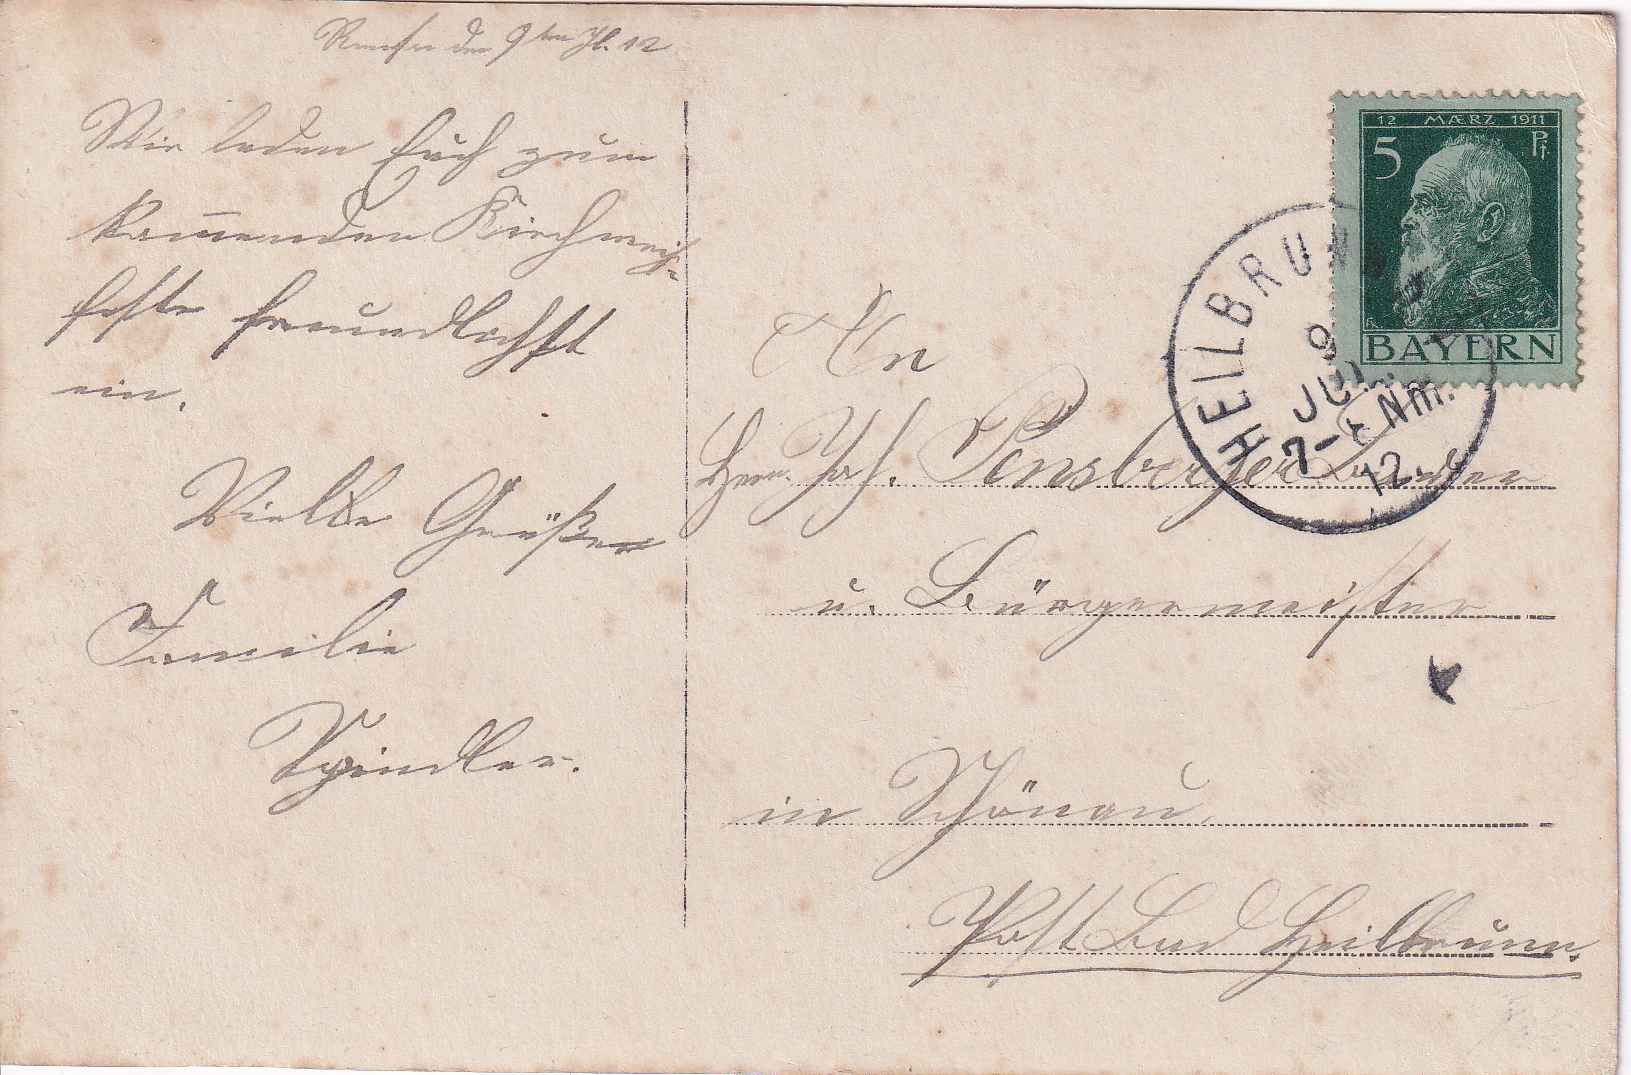 den 9ten Jl. 12
Wir laden Euch zum
kommenden Kirchweih-
feste freundlichst
ein.
Vielle Grüße
Familie
Spindler.
12 MÆRZ 1911
5 Pf
BAYERN
HEILBRUNN
9
JUL
7-8 Nm.
12.
An
Herr. Joh. Pensberger
u. Bürgermeister
in Schönau,
Post Bad Heilbrunn.